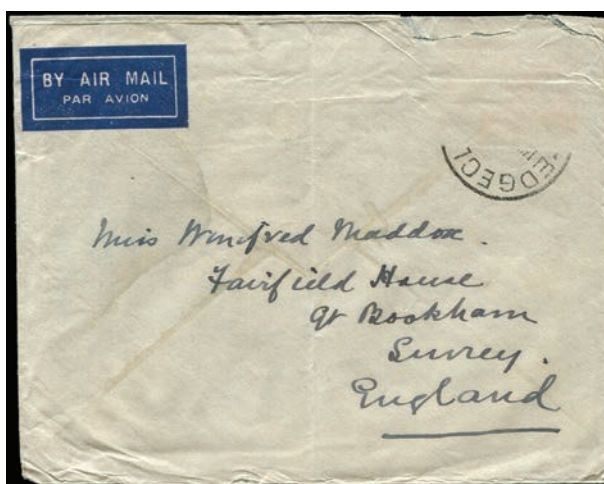 BY AIR MAIL
PAR AVION
Miss Winifred Maddox.
Fairfield House
Gt Bookham
Surrey.
England